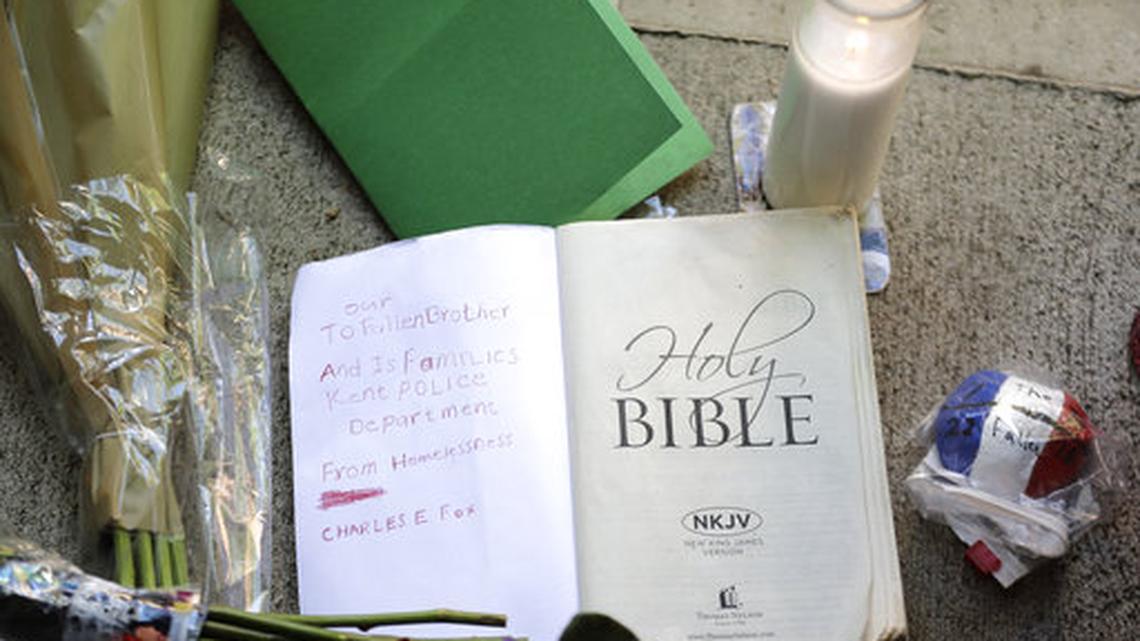 our
To Fallen Brother
And Is Families
Kent POLICE
Department
From Homelessness
CHARLES E Fox
Holy
BIBLE
NKJV
NEW KING JAMES
VERSION
THOMAS NELSON
The
22 Fallen